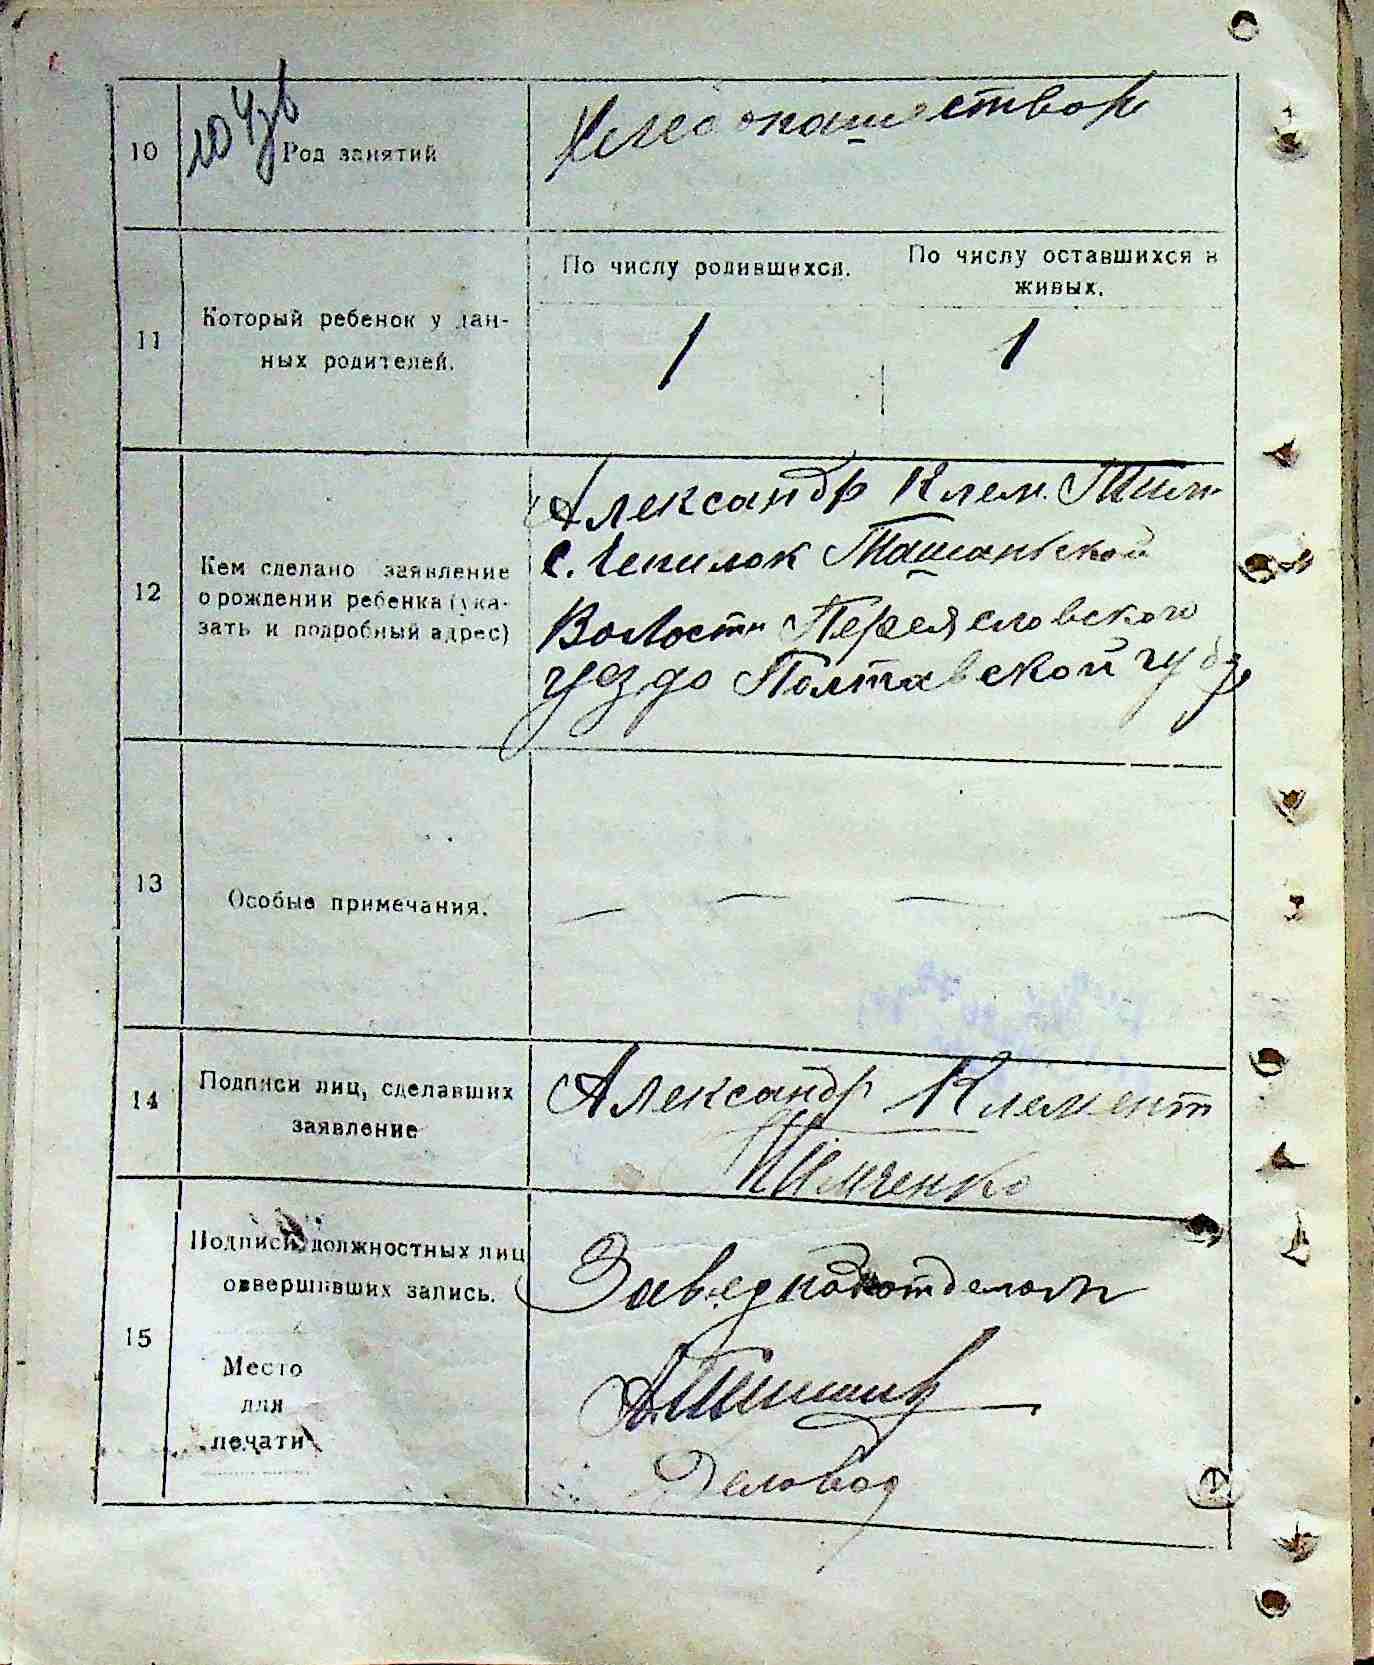 10
Род занятий
Хлебопашеством
11
Который ребенок у дан-
ных родителей.
По числу родившихся.
По числу оставшихся в
живых.
1
1
12
Кем сделано заявление
о рождении ребенка (ука-
зать и подробный адрес)
Александр Клем.
с. Чепилок Ташаньской
Волости Переясловского
уездо Полтавской губ
13
Особые примечания.
— — — —
14
Подписи лиц, сделавших
заявление
Александр Клемент
15
Подписи должностных лиц
совершивших запись.
Место
для
печати
Завед подотделом
Деловод